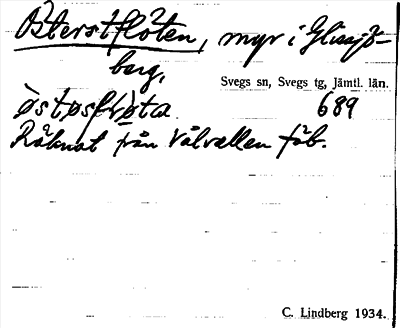 Österstflöten, myr i Glissjö-
berg,
Svegs sn, Svegs tg, Jämtl. län.
689
Räknat från Vålvallen fäb.
C. Lindberg 1934.